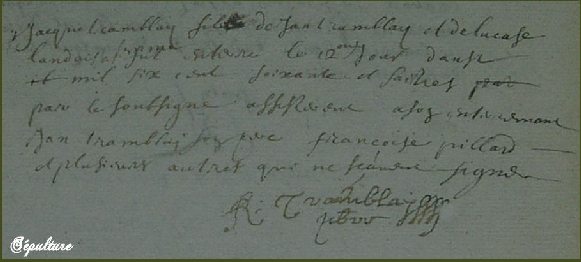 Jacque tramblay fils de Jan tramblay et de lucase
landoise fut enterre le 12 jour daust
et mil six cent soixante et saitres
par le soubsigne assisterent a son enterremant
Jan tramblay son pere francoise pillard
et plusieurs autres qui ne scavent signer
R. Tramblay
pbre
Sépulture